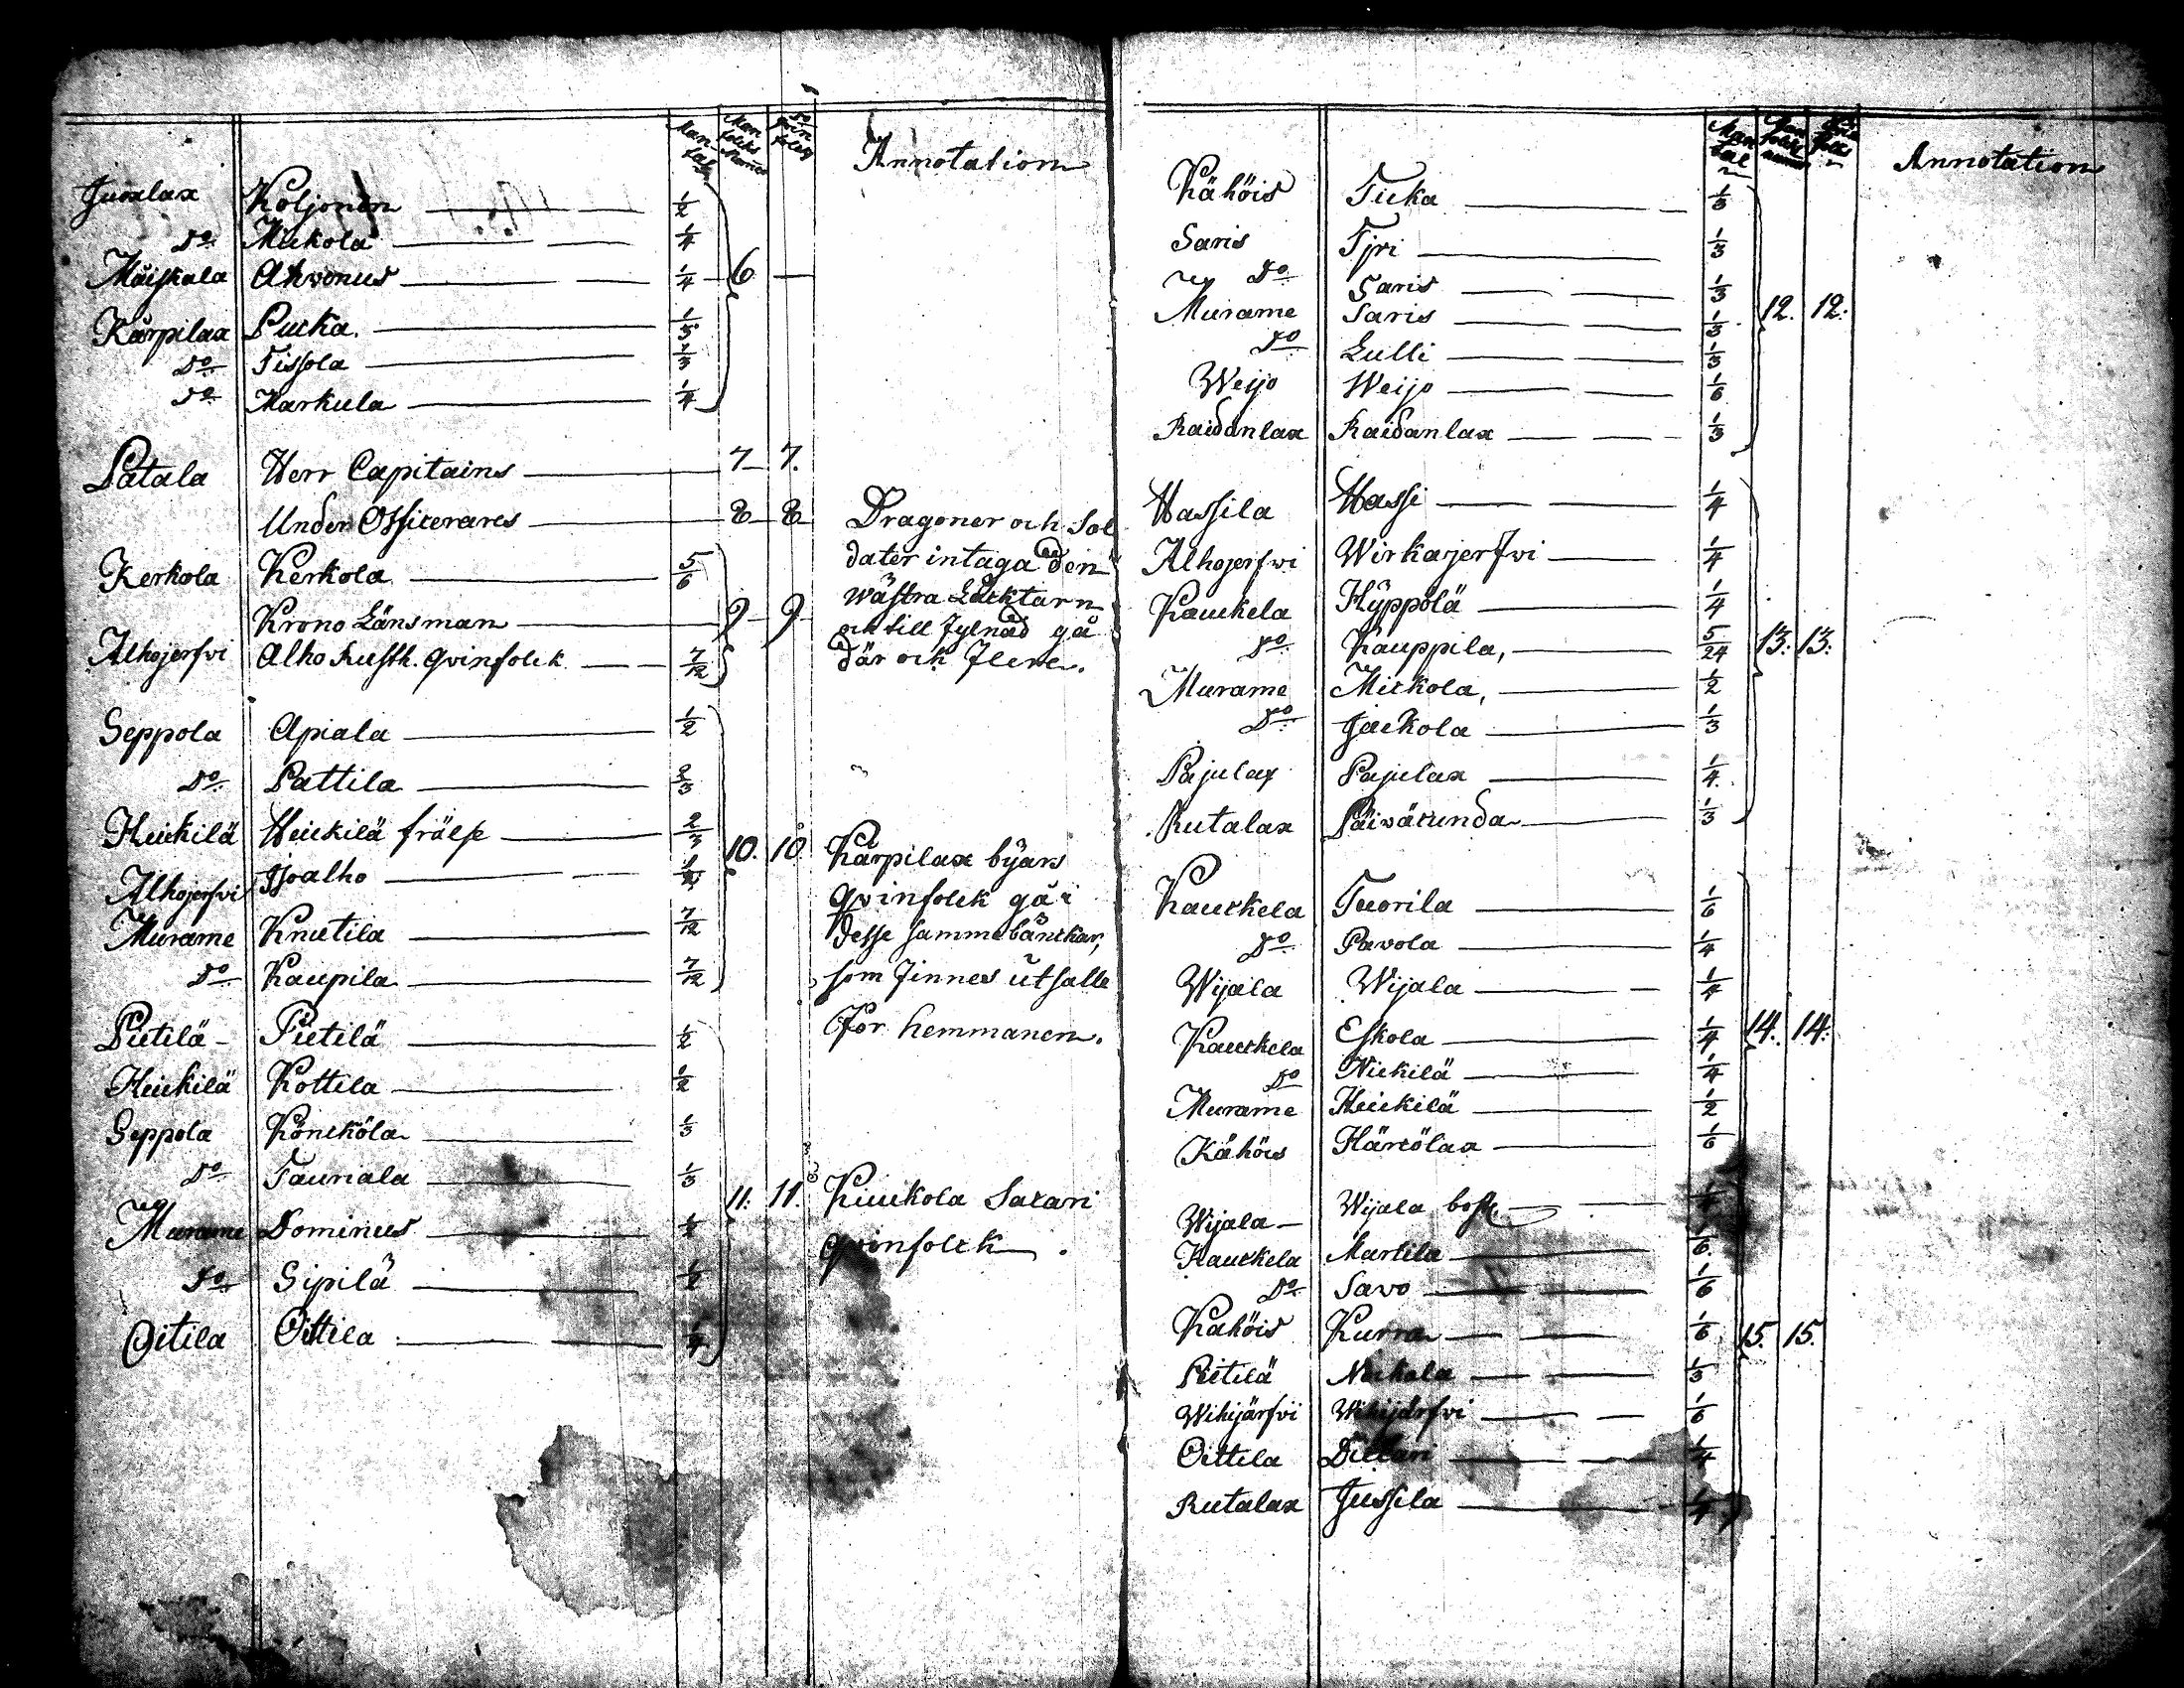 Mantal Manfolks Numer Do Qvinfolks Annotation
Juoxlax Koljonen 1/2
Do Mickola 1/4
Maiskala Ahvonus 1/4 6 —
Kärpilax Pucka 1/3
Do Tissola 1/3
Do Markula 1/4
Patala Herr Capitains 7 7.
Under Officerares 8 8
Dragoner och Sol
dater intaga den
wästra Läcktarn
och till Jylnad gå
där ock Flere.
Kerkola Kerkola 5/6
Krono Länsman 9 9
Alhojerfvi Alho Rusth. qvinfolck 7/12
Seppola Apiala 1/2
Do Pattila 2/3
Heickilä Heickilä frälse 2/3 10. 10
Alhojerfvi Isoalho 1/2
Murame Knutila 7/12
Do Kaupila 7/12
Kärpilax byars
qvinfolck gå i
desse samme bänckar,
som finnes utsatte
för hemmanen.
Pietilä Pietilä 1/2
Heickilä Kottila 1/2
Seppola Könckölä 1/3
Do Tauriala 1/3
11. 11. Kinckola Satari
qvinfolck.
Murame Dominus 1/2
Do Sipilä 1/2
Oitila Oittila 1/4
Mantal Annotation
Kähöis Ticka 1/3
Saris Tyri 1/3
Do Saris 1/3
Murame Saris 1/3 12. 12.
Do Lulli 1/3
Weijo Weijo 1/6
Raidanlax Raidanlax 1/3
Hassila Hassi 1/4
Alhojerfvi Wirkajerfvi 1/4
Kauckela Hyppölä 1/4
Do Kauppila, 5/24 13. 13.
Murame Mickola, 1/2
Do Jackola 1/3
Pajulax Pajulax 1/4
Rutalax Päiväcunda 1/3
Kauckela Tuorila 1/6
Do Pavola 1/4
Wijala Wijala 1/4
Kauckela Eskola 1/4 14. 14.
Do Nickilä 1/4
Murame Heickilä 1/2
Kähöis Härcölax 1/6
Wijala Wijala bost. 1/4
Kauckela Martila 1/6
Do Savo 1/6
Kähöis Kurra 1/6 15. 15.
Pietilä Nickala 1/3
Wihijärfvi Wihijärfvi 1/6
Oittila Dillari 1/4
Rutalax Jussila 1/4